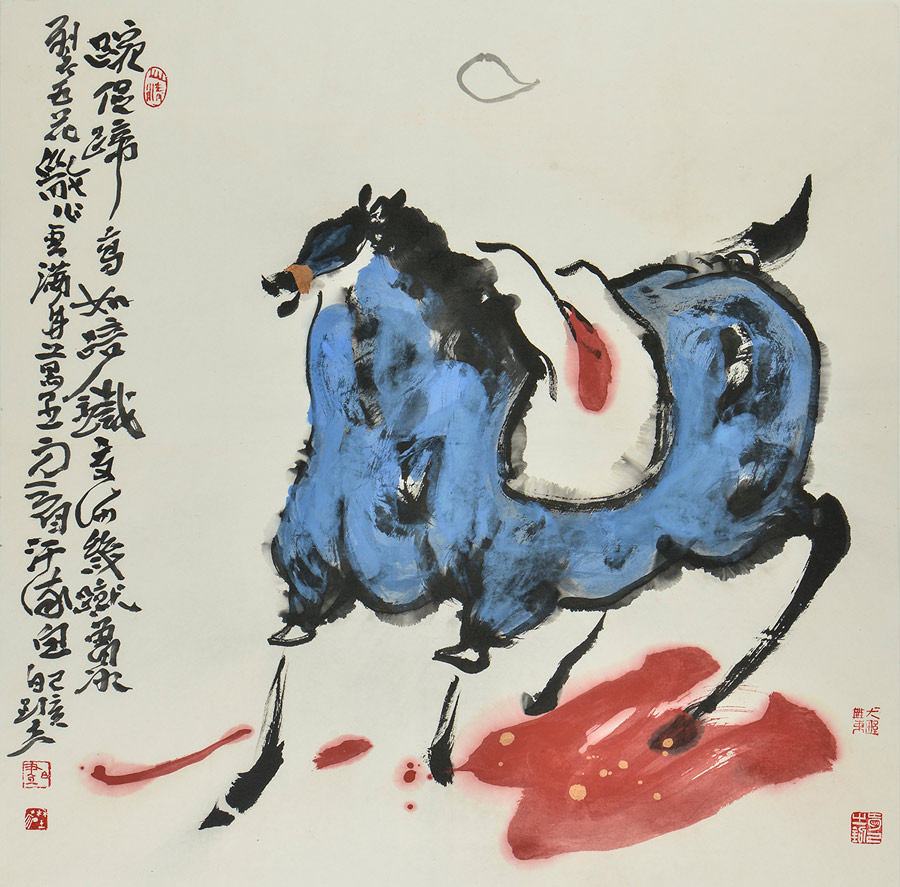 踠促蹄高如踣鐵交河幾蹴曾冰
裂五花散作雲滿身萬里方看汗流血
己亥